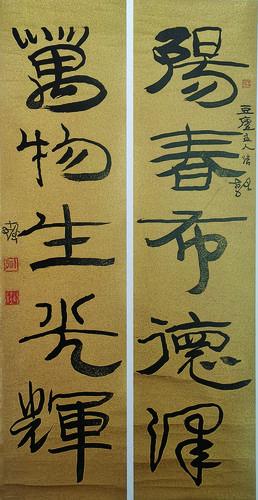 陽春布德澤
萬物生光輝